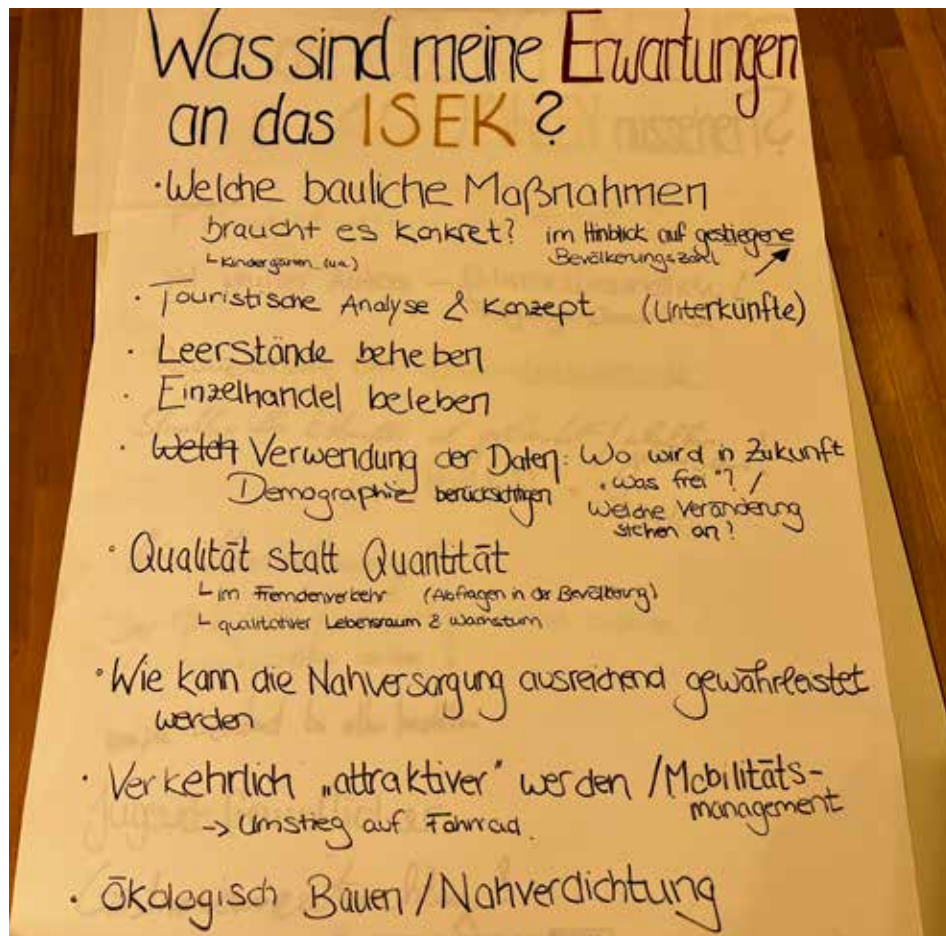 Was sind meine Erwartungen
an das ISEK?
· Welche bauliche Maßnahmen
braucht es konkret? im Hinblick auf gestiegene
Bevölkerungszahl
└ Kindergärten (u.a.)
· Touristische Analyse & Konzept (Unterkünfte)
· Leerstände beheben
· Einzelhandel beleben
· Welch Verwendung der Daten: Wo wird in Zukunft
Demographie berücksichtigen „was frei"? /
Welche Veränderung
stehen an?
· Qualität statt Quantität
└ im Fremdenverkehr (Abfragen in der Bevölkerung)
└ qualitativer Lebensraum & Wachstum
· Wie kann die Nahversorgung ausreichend gewährleistet
werden
· Verkehrlich „attraktiver" werden / Mobilitäts-
management
-> Umstieg auf Fahrrad.
· Ökologisch Bauen / Nahverdichtung